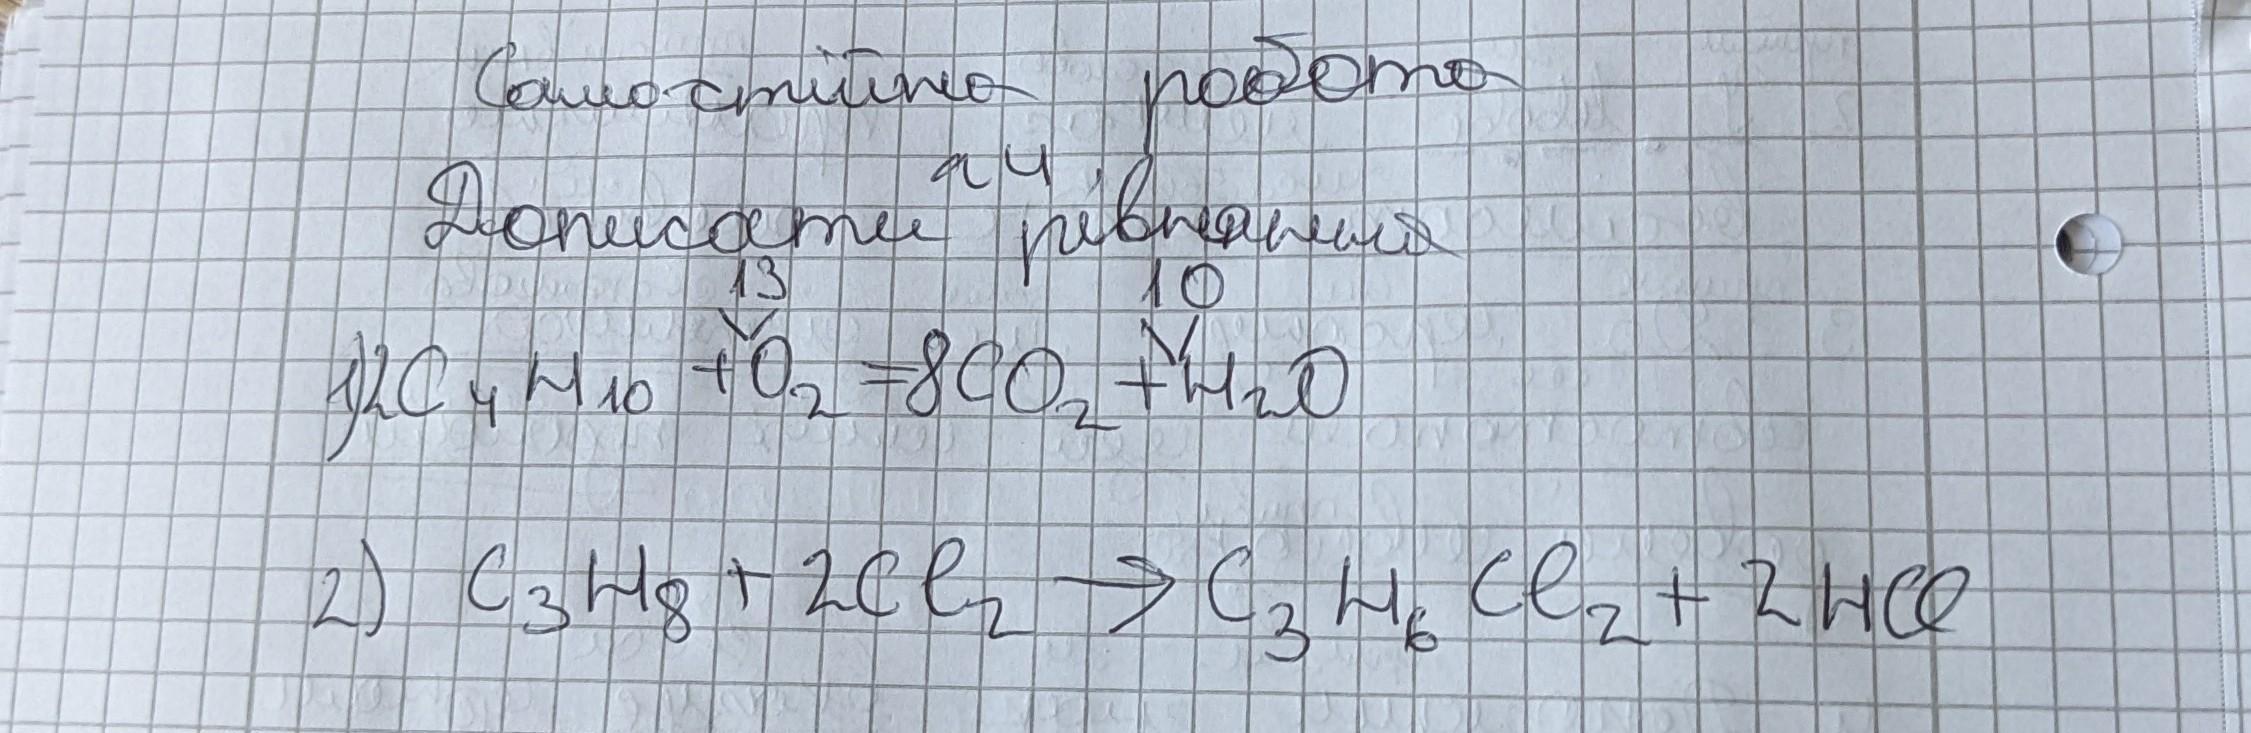 Самостійна робота
Дописати рівняння
1) 2C₄H₁₀ + 13O₂ = 8CO₂ + 10H₂O
2) C₃H₈ + 2Cl₂ → C₃H₆Cl₂ + 2HCl